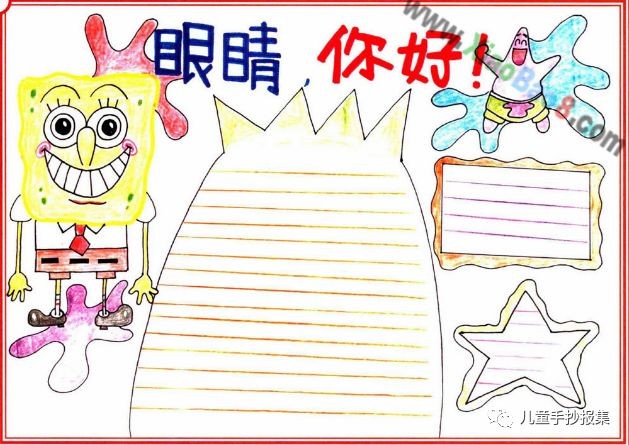 眼睛,你好!
www.XiaoBao8.com
儿童手抄报集